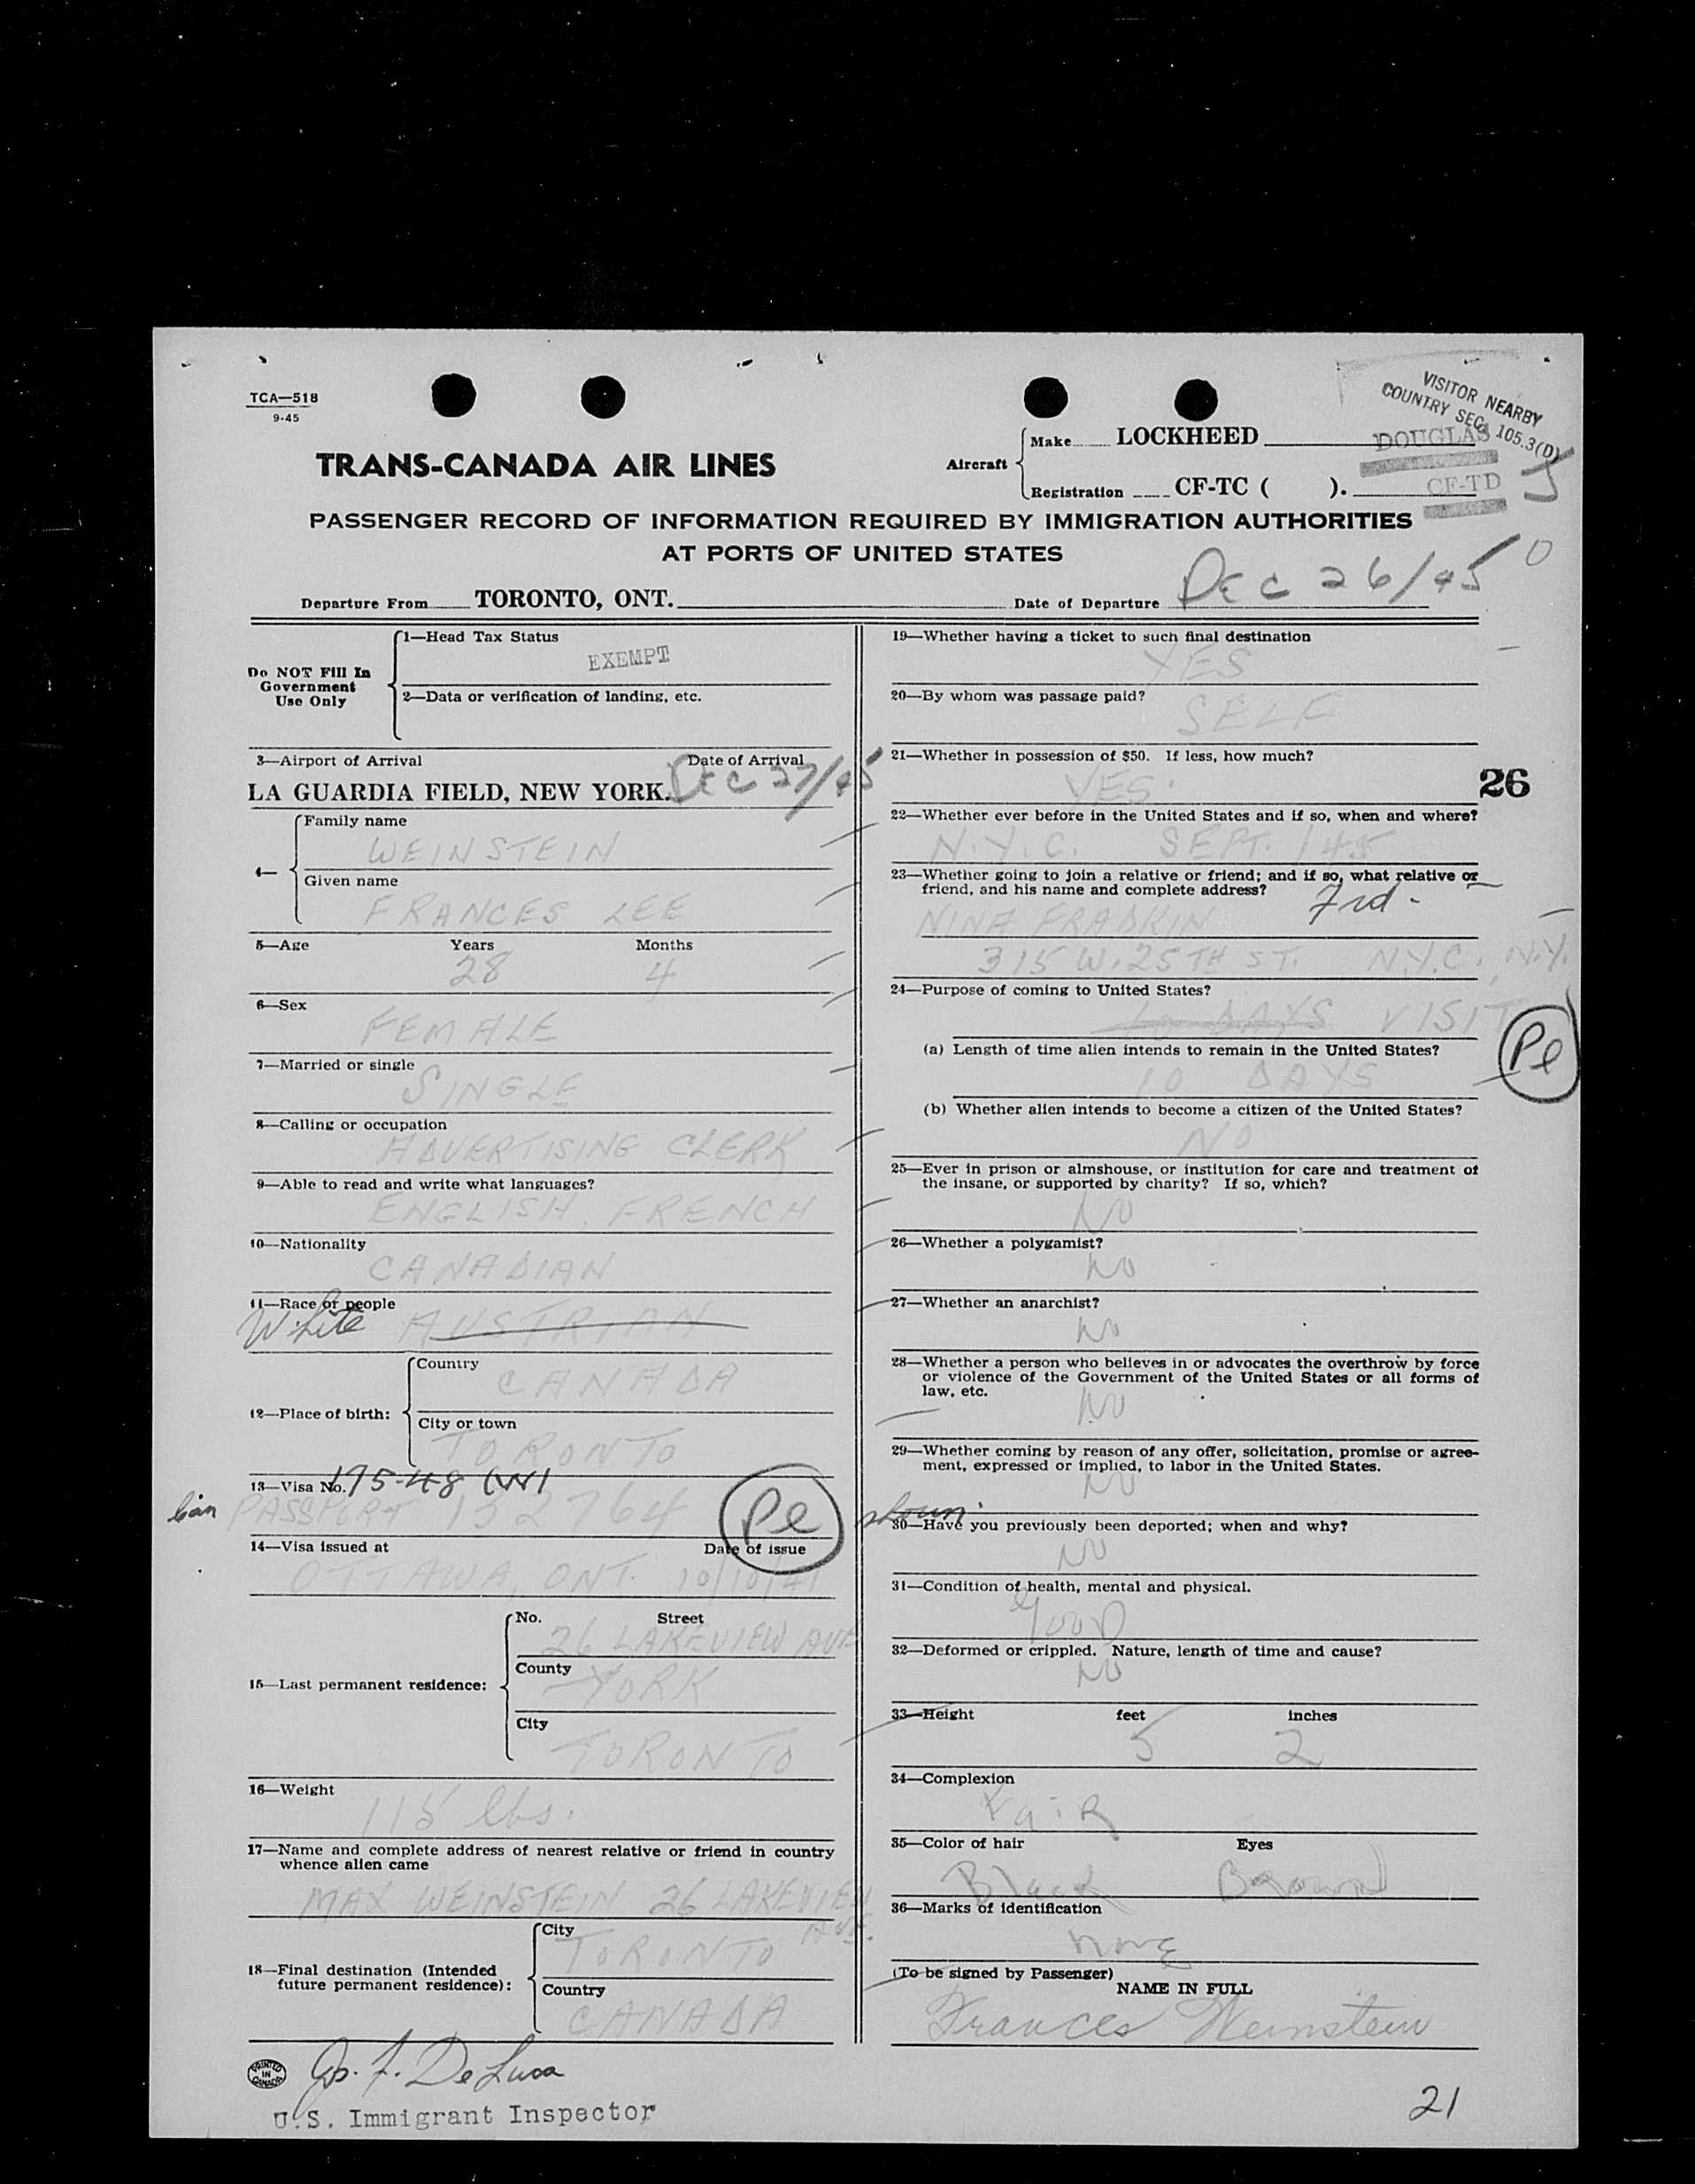 TCA—518
9-45
VISITOR NEARBY
COUNTRY SEC. 105.3(D)
TRANS-CANADA AIR LINES
Aircraft
Make LOCKHEED DOUGLAS
Registration CF-TC ( ). CF-TD J
PASSENGER RECORD OF INFORMATION REQUIRED BY IMMIGRATION AUTHORITIES
AT PORTS OF UNITED STATES
Departure From TORONTO, ONT. Date of Departure DEC 26/45 0
Do NOT Fill In
Government
Use Only
1—Head Tax Status
EXEMPT
2—Data or verification of landing, etc.
3—Airport of Arrival Date of Arrival
LA GUARDIA FIELD, NEW YORK. DEC 27/45
4—
Family name
WEINSTEIN
Given name
FRANCES LEE
5—Age Years Months
28 4
6—Sex
FEMALE
7—Married or single
SINGLE
8—Calling or occupation
ADVERTISING CLERK
9—Able to read and write what languages?
ENGLISH, FRENCH
10—Nationality
CANADIAN
11—Race or people
White AUSTRIAN
12—Place of birth:
Country
CANADA
City or town
TORONTO
13—Visa No. 195-48 (W)
Can PASSPORT 132764 Pe shown
14—Visa issued at Date of issue
OTTAWA, ONT. 10/10/41
15—Last permanent residence:
No. Street
26 LAKEVIEW AVE
County
YORK
City
TORONTO
16—Weight
115 lbs.
17—Name and complete address of nearest relative or friend in country
whence alien came
MAX WEINSTEIN 26 LAKEVIEW
AVE.
18—Final destination (Intended
future permanent residence):
City
TORONTO
Country
CANADA
PRINTED
IN
CANADA
Jos. F. DeLuca
U.S. Immigrant Inspector
19—Whether having a ticket to such final destination
YES
20—By whom was passage paid?
SELF
21—Whether in possession of $50. If less, how much?
YES
26
22—Whether ever before in the United States and if so, when and where?
N.Y.C. SEPT. /45
23—Whether going to join a relative or friend; and if so, what relative or
friend, and his name and complete address?
Frd.
NINA FRADKIN
315 W. 25TH ST. N.Y.C., N.Y.
24—Purpose of coming to United States?
10 DAYS VISIT
Pe
(a) Length of time alien intends to remain in the United States?
10 DAYS
(b) Whether alien intends to become a citizen of the United States?
NO
25—Ever in prison or almshouse, or institution for care and treatment of
the insane, or supported by charity? If so, which?
NO
26—Whether a polygamist?
NO
27—Whether an anarchist?
NO
28—Whether a person who believes in or advocates the overthrow by force
or violence of the Government of the United States or all forms of
law, etc.
NO
29—Whether coming by reason of any offer, solicitation, promise or agree-
ment, expressed or implied, to labor in the United States.
NO
30—Have you previously been deported; when and why?
NO
31—Condition of health, mental and physical.
GOOD
32—Deformed or crippled. Nature, length of time and cause?
NO
33—Height feet inches
5 2
34—Complexion
FaiR
35—Color of hair Eyes
Black Brown
36—Marks of identification
NONE
(To be signed by Passenger)
NAME IN FULL
Frances Weinstein
21